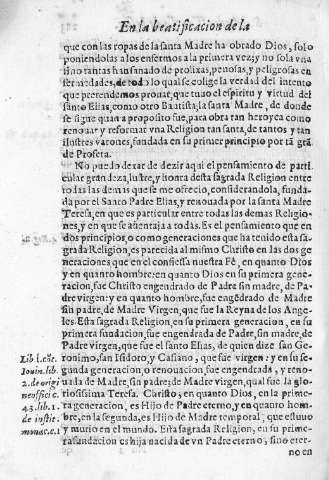 En la beatificacion de la
que con las ropas de la santa Madre ha obrado Dios, solo
poniendolas a los enfermos a la primera vez; y no sola vna
sino tantas han sanado de prolixas, penosas, y peligrosas en
fermedades, de todo lo qual se colige la verdad del intento
que pretendemos prouar, que tuuo el espiritu y virtud del
santo Elias, como otro Bautista, la santa Madre, de donde
se sigue quan a proposito fue, para obra tan heroyca como
renouar y reformar vna Religion tan santa, de tantos y tan
ilustres varones, fundada en su primer principio por tã grã
de Profeta.
No puedo dexar de dezir aqui el pensamiento de parti
cular grandeza, lustre, y honra desta sagrada Religion entre
todas las demas que se me ofrecio, considerandola, funda-
da por el Santo Padre Elias, y renouada por la santa Madre
Teresa, en que es particular entre todas las demas Religio-
nes, y en que se auentaja a todas. Es el pensamiento que en
dos principios, o como generaciones que ha tenido esta sa-
grada Religion, es parecida al mismo Christo en las dos ge
neraciones que en el confiessa nuestra Fè, en quanto Dios
y en quanto hombre: en quanto Dios en su primera gene-
racion, fue Christo engendrado de Padre sin madre, de Pa-
dre virgen: y en quanto hombre, fue engẽdrado de Madre
sin padre, de Madre Virgen, que fue la Reyna de los Ange
les. Esta sagrada Religion, en su primera generacion, en su
primera fundacion, fue engendrada de Padre, sin madre, de
Padre virgen, que fue el santo Elias, de quien dize san Ge-
ronimo, san Isidoro, y Casiano, que fue virgen: y en su se-
gunda generacion, o renouacion, fue engendrada, y reno-
uada de Madre, sin padre; de Madre virgen, qual fue la glo
riosissima Teresa. Christo, en quanto Dios, en la prime-
ra generacion, es Hijo de Padre eterno, y en quanto hom-
bre, en la segunda, es Hijo de Madre temporal, que estuuo
y murio en el mundo. Esta sagrada Religion, en su prime-
ra fundacion es hija nacida de vn Padre eterno, sino eter-
no en
Iouin. lib.
2. de origi
ne offici e.
43. lib. 1.
de instit.
monac. c. 1